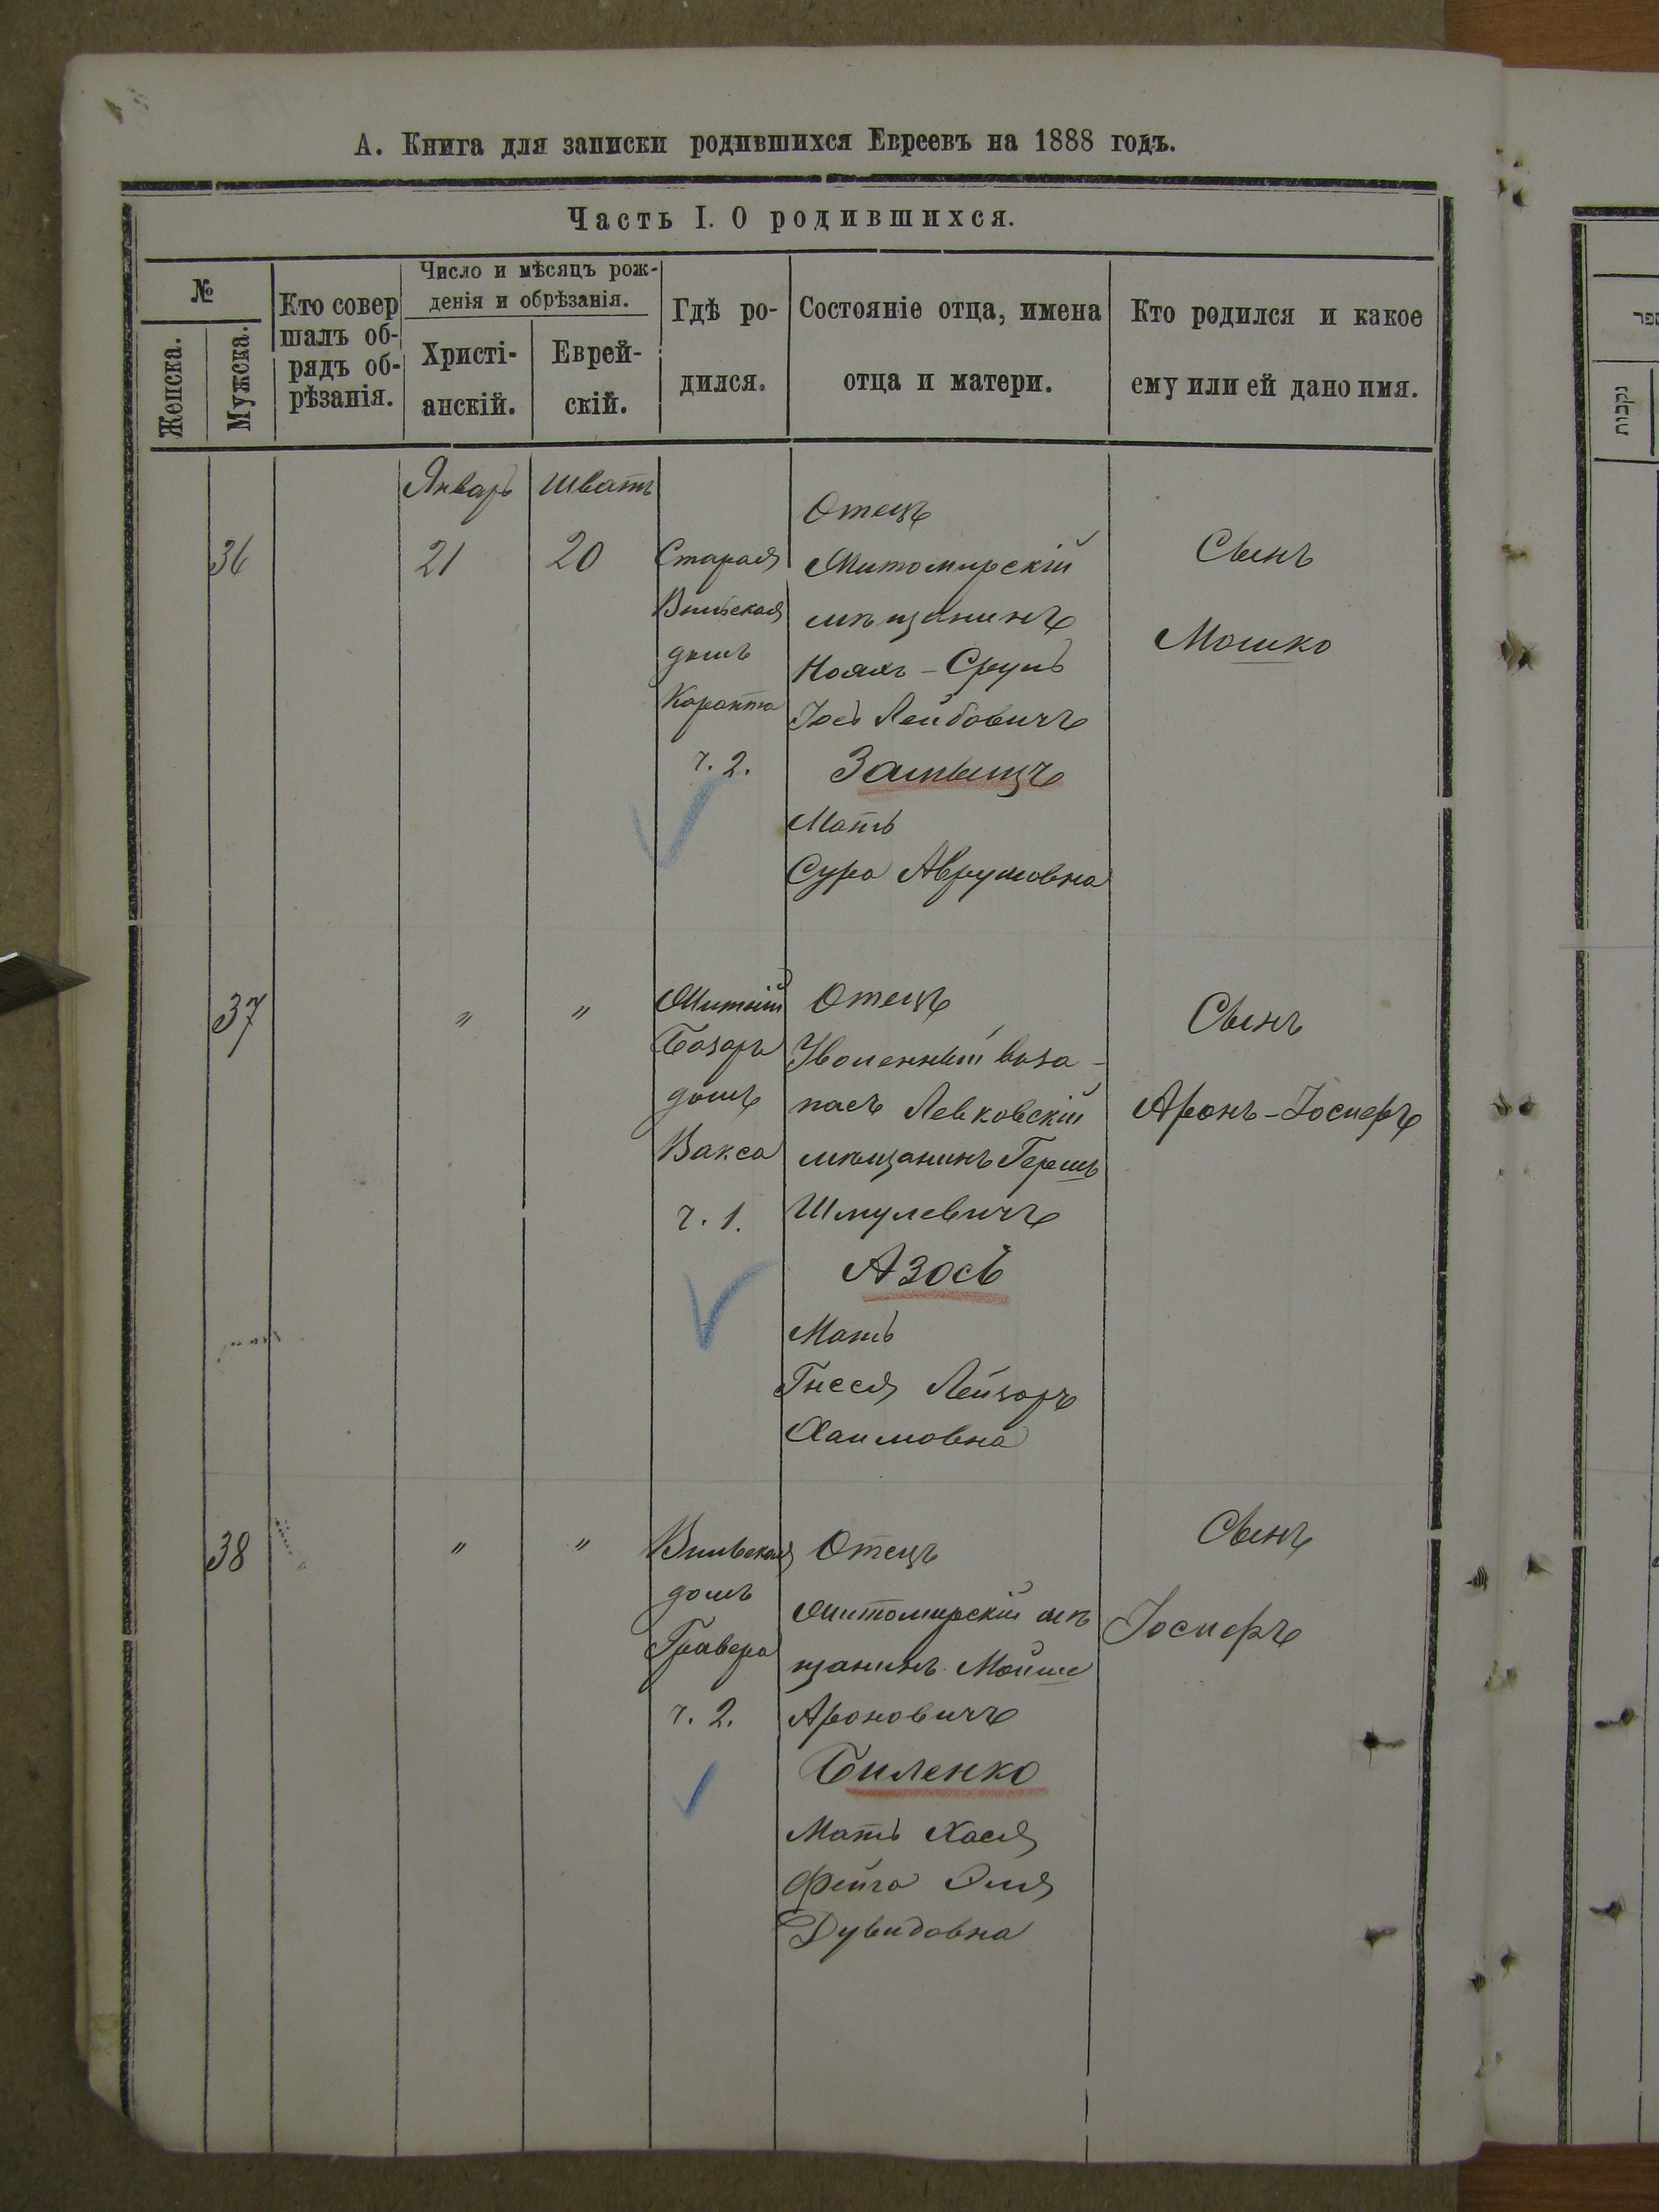 А. Книга для записки родившихся Евреевъ на 1888 годъ.
Часть I. О родившихся.
№
Женска.
Мужска.
Кто совер
шалъ об-
рядъ об-
рѣзанія.
Число и мѣсяцъ рож-
денія и обрѣзанія.
Христі-
анскій.
Еврей-
скій.
Гдѣ ро-
дился.
Состояніе отца, имена
отца и матери.
Кто родился и какое
ему или ей дано имя.
Январь
Шватъ
36
21
20
Старая
Вильская
домъ
ч. 2.
Отецъ
Житомирскій
мѣщанинъ
Ноахъ-Сруль
Іось Лейбовичъ
Мать
Сура Аврумовна
Сынъ
Мошко
37
"
"
Житній
Базаръ
домъ
Вакса
ч. 1.
Отецъ
Уволенный въ за-
пасъ Левковскій
мѣщанинъ Гершъ
Шмулевичъ
Азось
Мать
Гнеся Лейзоръ
Хаимовна
Сынъ
Аронъ-Іосифъ
38
"
"
Вильская
домъ
Гравера
ч. 2.
Отецъ
Житомирскій мѣ
щанинъ Мойше
Ароновичъ
Биленко
Мать Хася
Фейга Эля
Дувидовна
Сынъ
Іосифъ
נקבות